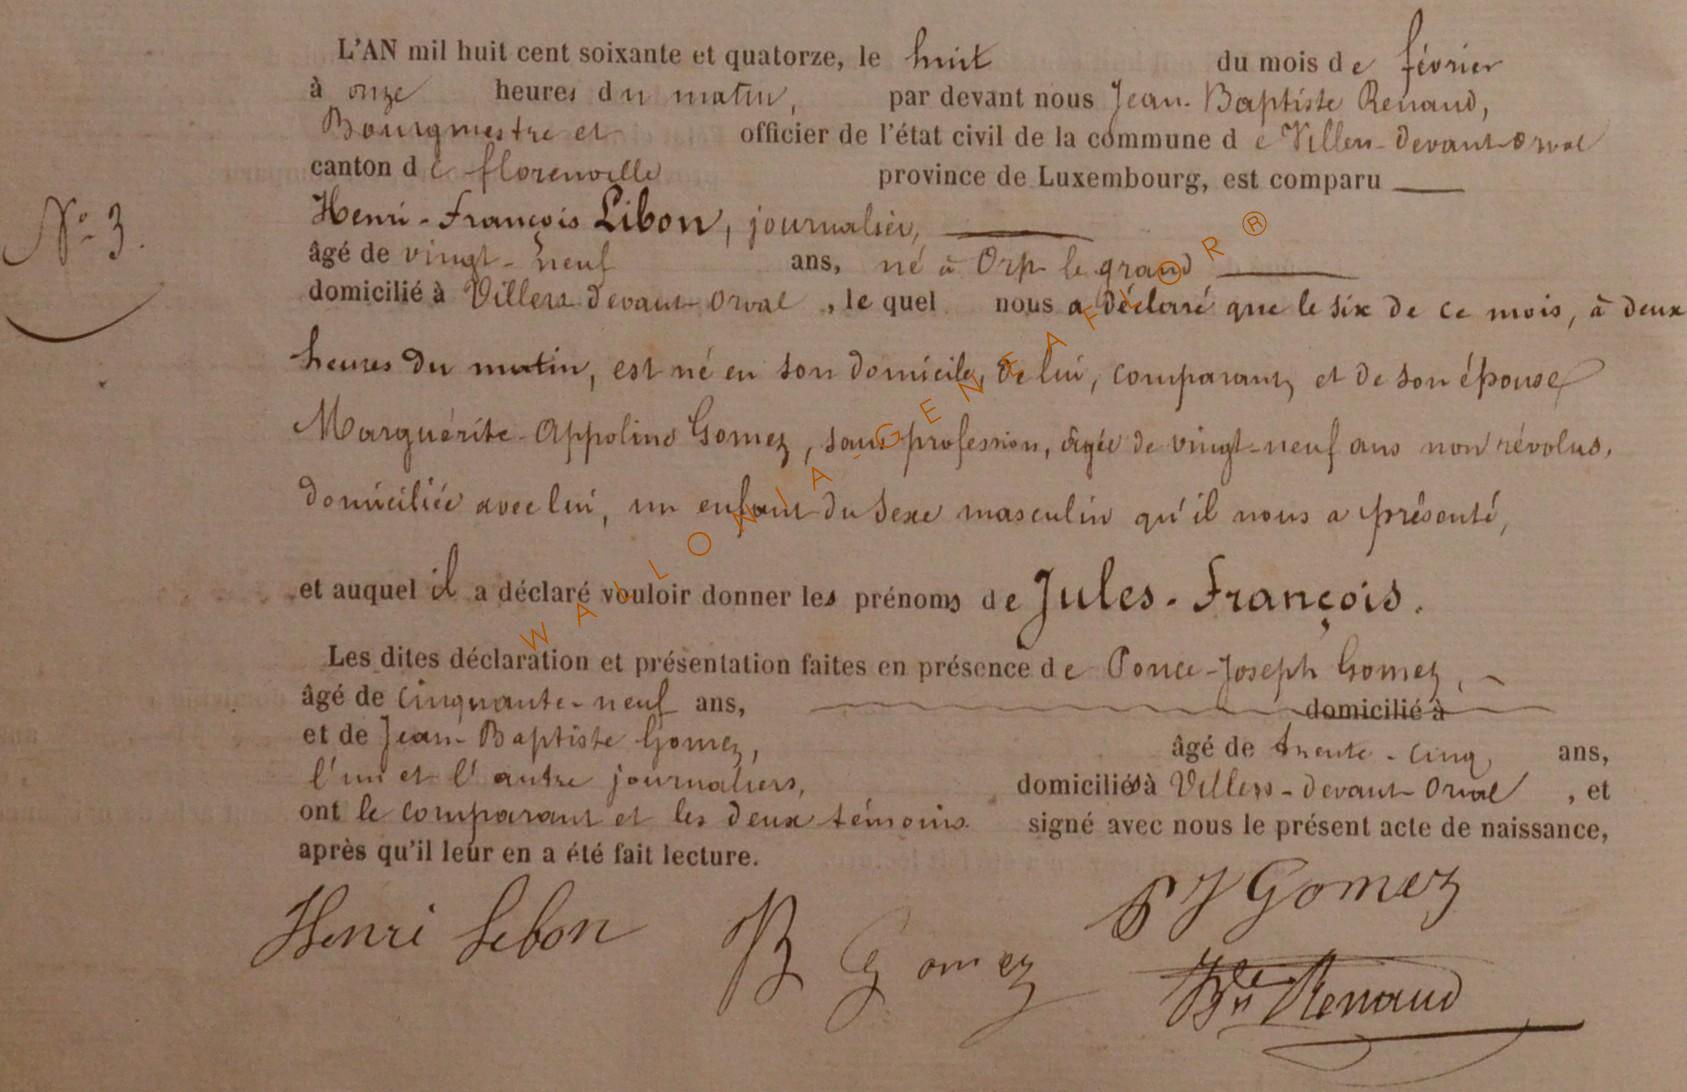 L'AN mil huit cent soixante et quatorze, le huit du mois de février
à onze heures du matin, par devant nous Jean-Baptiste Renaud,
Bourgmestre et officier de l'état civil de la commune de Villers-devant-Orval
canton de florenville province de Luxembourg, est comparu
Henri-François Libon, journalier,
N° 3.
âgé de vingt-neuf ans, né à Orp le grand
domicilié à Villers devant Orval, le quel nous a déclaré que le six de ce mois, à deux
heures du matin, est né en son domicile, de lui, comparant, et de son épouse
Marguérite-Appoline Gomez, sans profession, âgée de vingt-neuf ans non révolus,
domiciliée avec lui, un enfant du sexe masculin qu'il nous a présenté,
et auquel il a déclaré vouloir donner les prénoms de Jules-François.
Les dites déclaration et présentation faites en présence de Ponce-Joseph Gomez,
âgé de cinquante-neuf ans, domicilié à
et de Jean-Baptiste Gomez, âgé de trente-cinq ans,
l'un et l'autre journaliers, domiciliés à Villers-devant-Orval, et
ont le comparant et les deux témoins signé avec nous le présent acte de naissance,
après qu'il leur en a été fait lecture.
Henri Lebon B Gomez P J Gomez
Renaud
WALLONIA-GENEAFLOR®